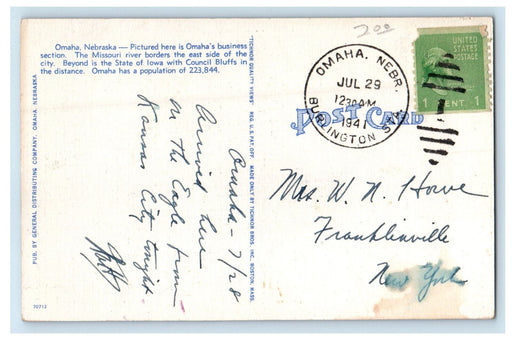 Omaha, Nebraska — Pictured here is Omaha's business
section. The Missouri river borders the east side of the
city. Beyond is the State of Iowa with Council Bluffs in
the distance. Omaha has a population of 223,844.
200
OMAHA, NEBR.
JUL 29
12 30 AM
1941
BURLINGTON STA.
UNITED
STATES
POSTAGE
1 CENT 1
POST CARD
PUB. BY GENERAL DISTRIBUTING COMPANY, OMAHA, NEBRASKA
"TICHNOR QUALITY VIEWS" REG. U.S. PAT. OFF. MADE ONLY BY TICHNOR BROS. INC. BOSTON, MASS.
Omaha - 7/28
Arrived here
on the Eagle from
Kansas City tonight.
Mrs. W. N. Howe
Franklinville
New York
70713